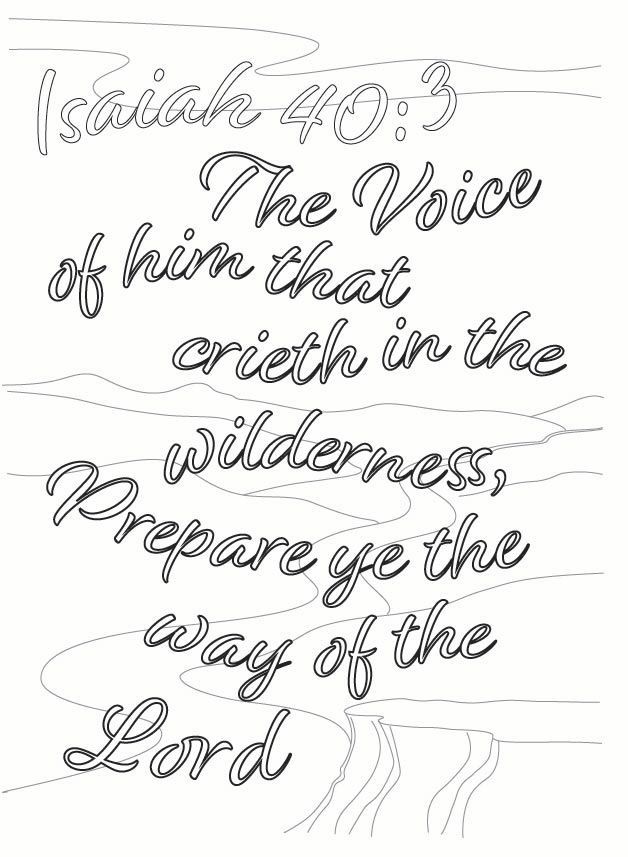 Isaiah 40:3
The Voice
of him that
crieth in the
wilderness,
Prepare ye the
way of the
Lord